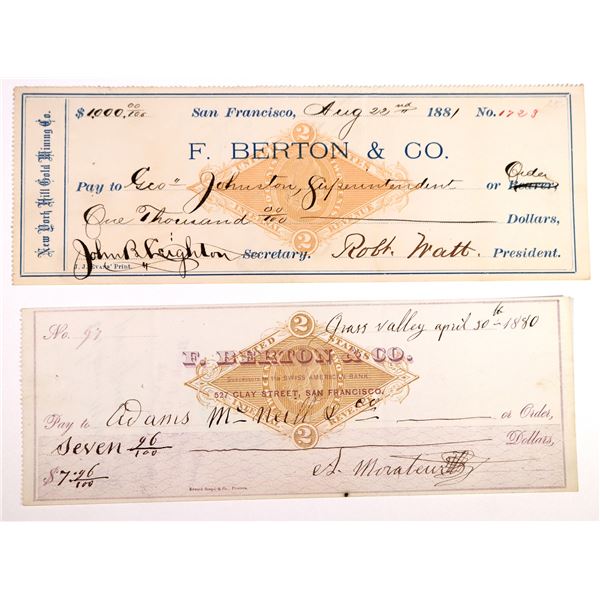 New York Hill Gold Mining Co.
$1,000.00/100 San Francisco, Aug 22nd 1881 No. 1723
F. BERTON & CO.
2
UNITED STATES
Order
Pay to Geo" Johnston, Superintendent or Bearer
One Thousand 00/100 Dollars,
INTERNAL REVENUE
2
John R. Leighton Secretary. Robt. Watt. President.
J. J. Evans' Print.
No. 97 Grass Valley april 30th 1880
2
UNITED STATES
F. BERTON & CO.
Successors to the SWISS AMERICAN BANK
527 CLAY STREET, SAN FRANCISCO.
Pay to Adams McNeill & Co or Order,
2
Seven 96/100 Dollars,
$ 7.96/100 A. Morateur